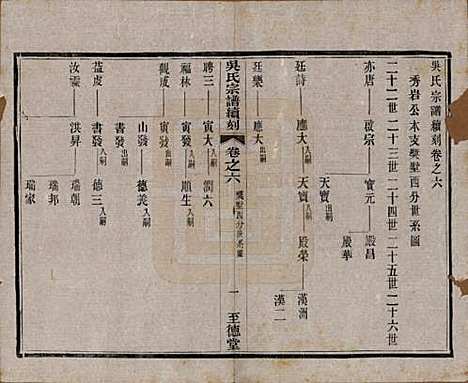 吳氏宗譜續刻卷之六
秀岩公本支樊墅西分世系圖
二十二世二十三世二十四世二十五世二十六世
亦唐 啟宗 寶元 殿昌
殿華
廷詩 應大 天寶出嗣
天寶入嗣 殿榮 漢洲
漢二
廷樂 應大出嗣
吳氏宗譜續刻
卷之六
西分世系圖
一
至德堂
聘三 寅大入嗣 潤六
福林 寅發出嗣 順生入嗣
觀成 寅發
山發 德美入嗣
書發出嗣
益成 書發入嗣 德三入嗣
汝霖 洪昇 瑞朝
瑞邦
瑞家